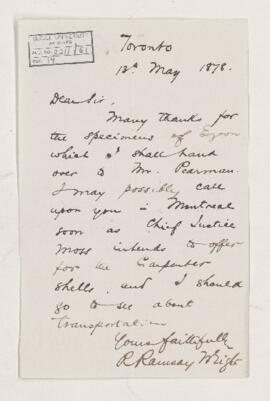 Toronto
12th May 1878.
Dear Sir,
Many thanks for
the specimens of
which I shall hand
over to Mr. Pearman.
I may possibly call
upon you in Montreal
soon as Chief Justice
Moss intends to offer
for the Carpenter
shells, and I should
go to see about
transportation
Yours faithfully
R. Ramsay Wright